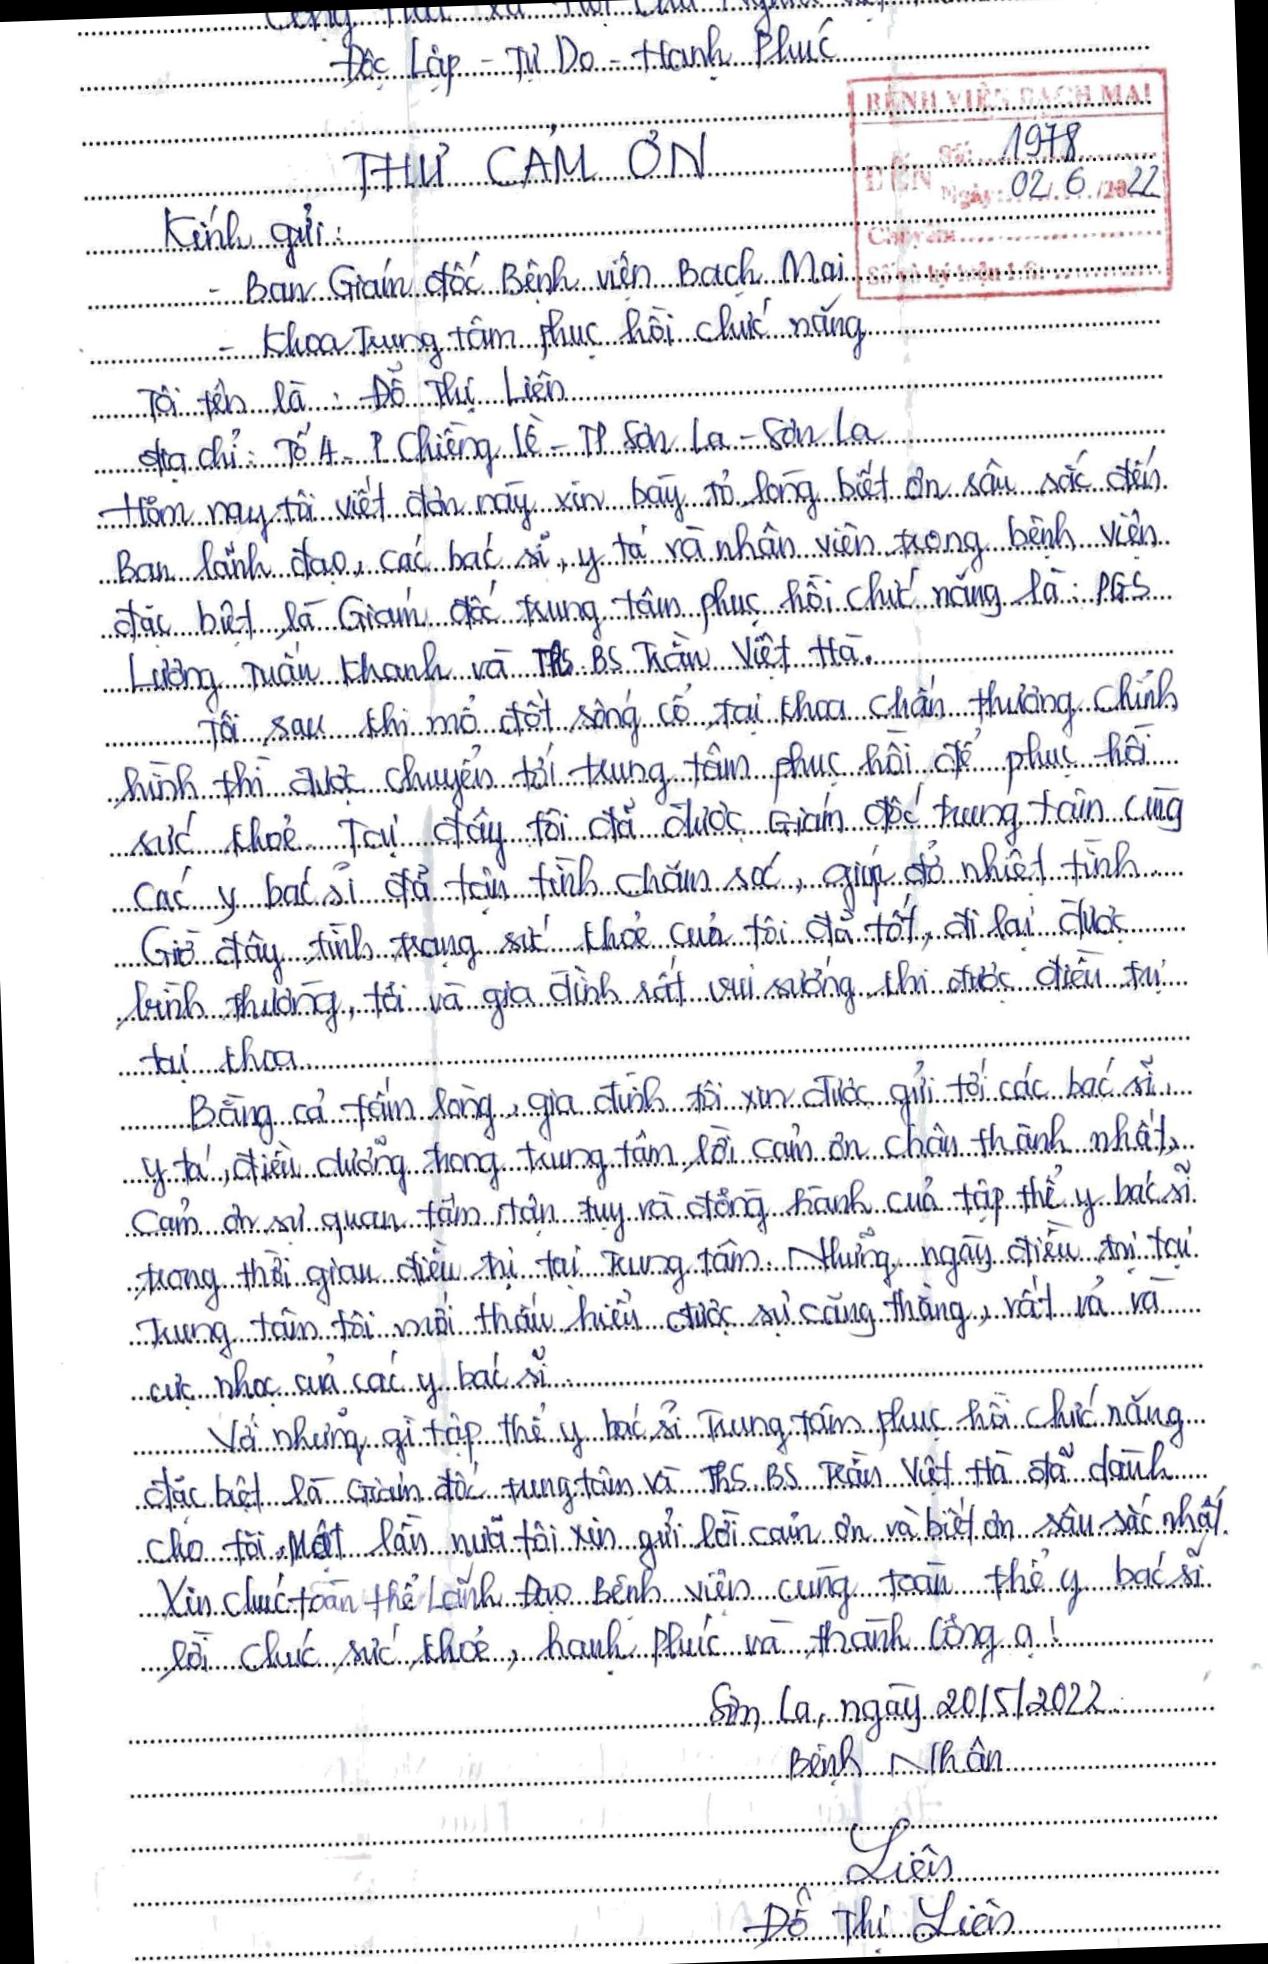 Cộng Hoà Xã Hội Chủ Nghĩa
Độc Lập - Tự Do - Hạnh Phúc
BỆNH VIỆN BẠCH MAI
THƯ CẢM ƠN
Số: 1978
ĐẾN Ngày: 02/6/2022
Kính gửi:
Chuyển:
- Ban Giám đốc Bệnh viện Bạch Mai
Số và ký hiệu HS:
- Khoa Trung tâm phục hồi chức năng
Tôi tên là: Đỗ Thị Liên
địa chỉ: Tổ 4 - P Chiềng Lề - TP Sơn La - Sơn La
Hôm nay tôi viết đơn này xin bày tỏ lòng biết ơn sâu sắc đến
Ban lãnh đạo, các bác sĩ, y tá và nhân viên trong bệnh viện
đặc biệt là Giám đốc trung tâm phục hồi chức năng là: PGS
Lương Tuấn Khanh và ThS.BS Trần Việt Hà.
Tôi sau khi mổ đốt sống cổ tại khoa chấn thương chỉnh
hình thì được chuyển tới trung tâm phục hồi để phục hồi
sức khoẻ. Tại đây tôi đã được Giám đốc trung tâm cùng
các y bác sĩ đã tận tình chăm sóc, giúp đỡ nhiệt tình
Giờ đây tình trạng sức khoẻ của tôi đã tốt, đi lại được
bình thường, tôi và gia đình rất vui sướng khi được điều trị
tại khoa
Bằng cả tấm lòng, gia đình tôi xin được gửi tới các bác sĩ,
y tá, điều dưỡng trong trung tâm lời cảm ơn chân thành nhất,
Cảm ơn sự quan tâm tận tụy và đồng hành của tập thể y bác sĩ
trong thời gian điều trị tại Trung tâm. Những ngày điều trị tại
Trung tâm tôi mới thấu hiểu được sự căng thẳng, vất vả và
cực nhọc của các y bác sĩ.
Với những gì tập thể y bác sĩ Trung tâm phục hồi chức năng
đặc biệt là Giám đốc trung tâm và ThS.BS Trần Việt Hà đã dành
cho tôi, Một lần nữa tôi xin gửi lời cảm ơn và biết ơn sâu sắc nhất.
Xin chúc toàn thể Lãnh Đạo Bệnh viện cùng toàn thể y bác sĩ
lời chúc sức khoẻ, hạnh phúc và thành công ạ!
Sơn La, ngày 20/5/2022
Bệnh Nhân
Liên
Đỗ Thị Liên